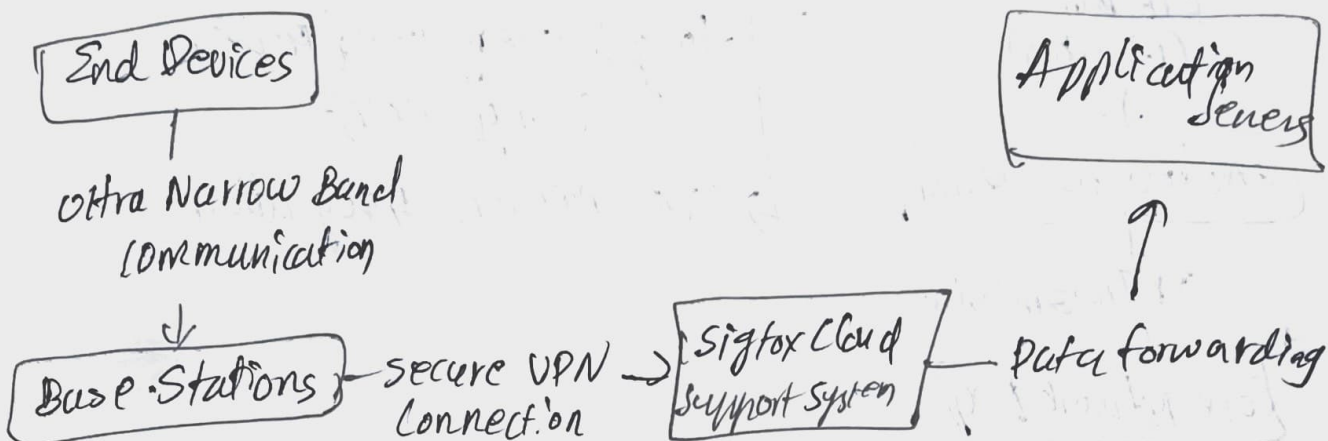 End Devices
Ultra Narrow Band
Communication
Base Stations
secure VPN
Connection
Sigfox Cloud
Support System
Data forwarding
Application
Servers